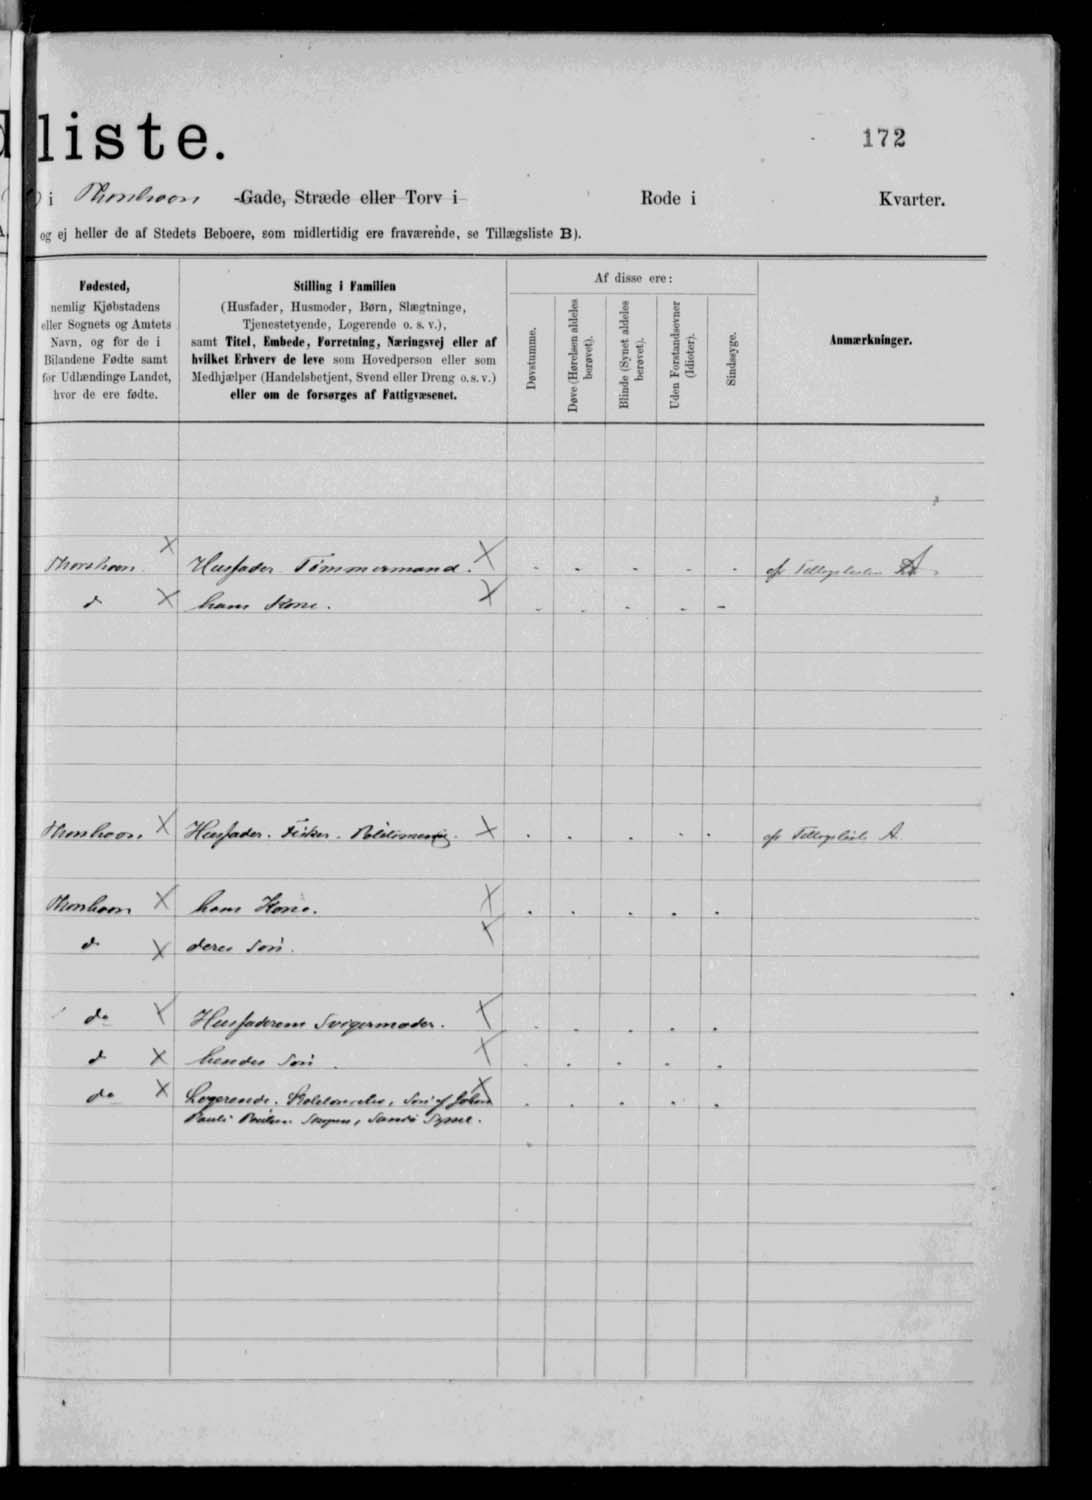 liste.
172
i Thorshavn Gade, Stræde eller Torv i Rode i Kvarter.
og ej heller de af Stedets Beboere, som midlertidig ere fraværende, se Tillægsliste B).
Fødested,
nemlig Kjøbstadens
eller Sognets og Amtets
Navn, og for de i
Bilandene Fødte samt
for Udlændinge Landet,
hvor de ere fødte.
Stilling i Familien
(Husfader, Husmoder, Børn, Slægtninge,
Tjenestetyende, Logerende o. s. v.),
samt Titel, Embede, Forretning, Næringsvej eller af
hvilket Erhverv de leve som Hovedperson eller som
Medhjælper (Handelsbetjent, Svend eller Dreng o. s. v.)
eller om de forsørges af Fattigvæsenet.
Af disse ere:
Døvstumme.
Døve (Hørelsen aldeles
berøvet).
Blinde (Synet aldeles
berøvet).
Uden Forstandsevner
(Idioter).
Sindssyge.
Anmærkninger.
Thorshavn X Husfader Tömmermand. X - - - - - Tillægslisten A
d X hans Kone. X - - - - -
Thorshavn X Husfader. Fisker. X Tillægsliste A.
Thorshavn X hans Kone. X
d X deres Sön. X
do X Husfaderens Svigermoder. X
d X hendes Sön X
do X Logerende. Sön af X